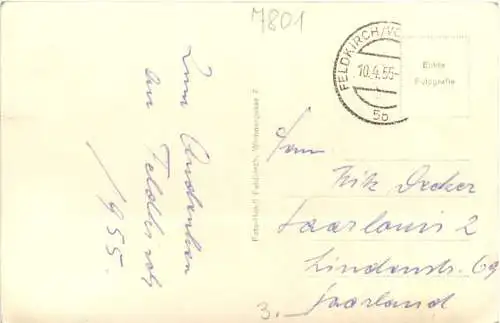 7801
FELDKIRCH/VO
10.4.55-
5b
Echte
Fotografie
Zum Andenken
an Feldkirch
1955.
Feldkirch, Wichnergasse 2
Herrn
Fritz Decker
Saarlouis 2
Lindenstr. 69
Saarland
3.